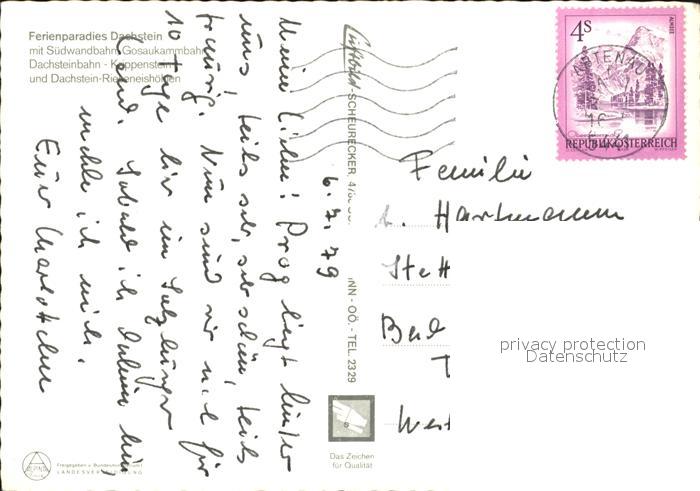 Ferienparadies Dachstein
mit Südwandbahn, Gosaukammbahn
Dachsteinbahn - Krippenstein
und Dachstein-Rieseneishöhlen
6.7.79
Meine Lieben! Prag liegt hinter
uns, teils sehr, sehr schön, teils
traurig. Nun sind wir noch für
10 Tage hier im Salzburger
Land. Sobald ich daheim bin,
melde ich mich.
Eure
SCHEURECKER,
INN - OÖ. - TEL. 2329
Das Zeichen
für Qualität
ALPINE
LANDESVERTEIDIGUNG
4S
ALMSEE
REPUBLIK ÖSTERREICH
Familie
Hartmann
Stett
Bad
West
privacy protection
Datenschutz